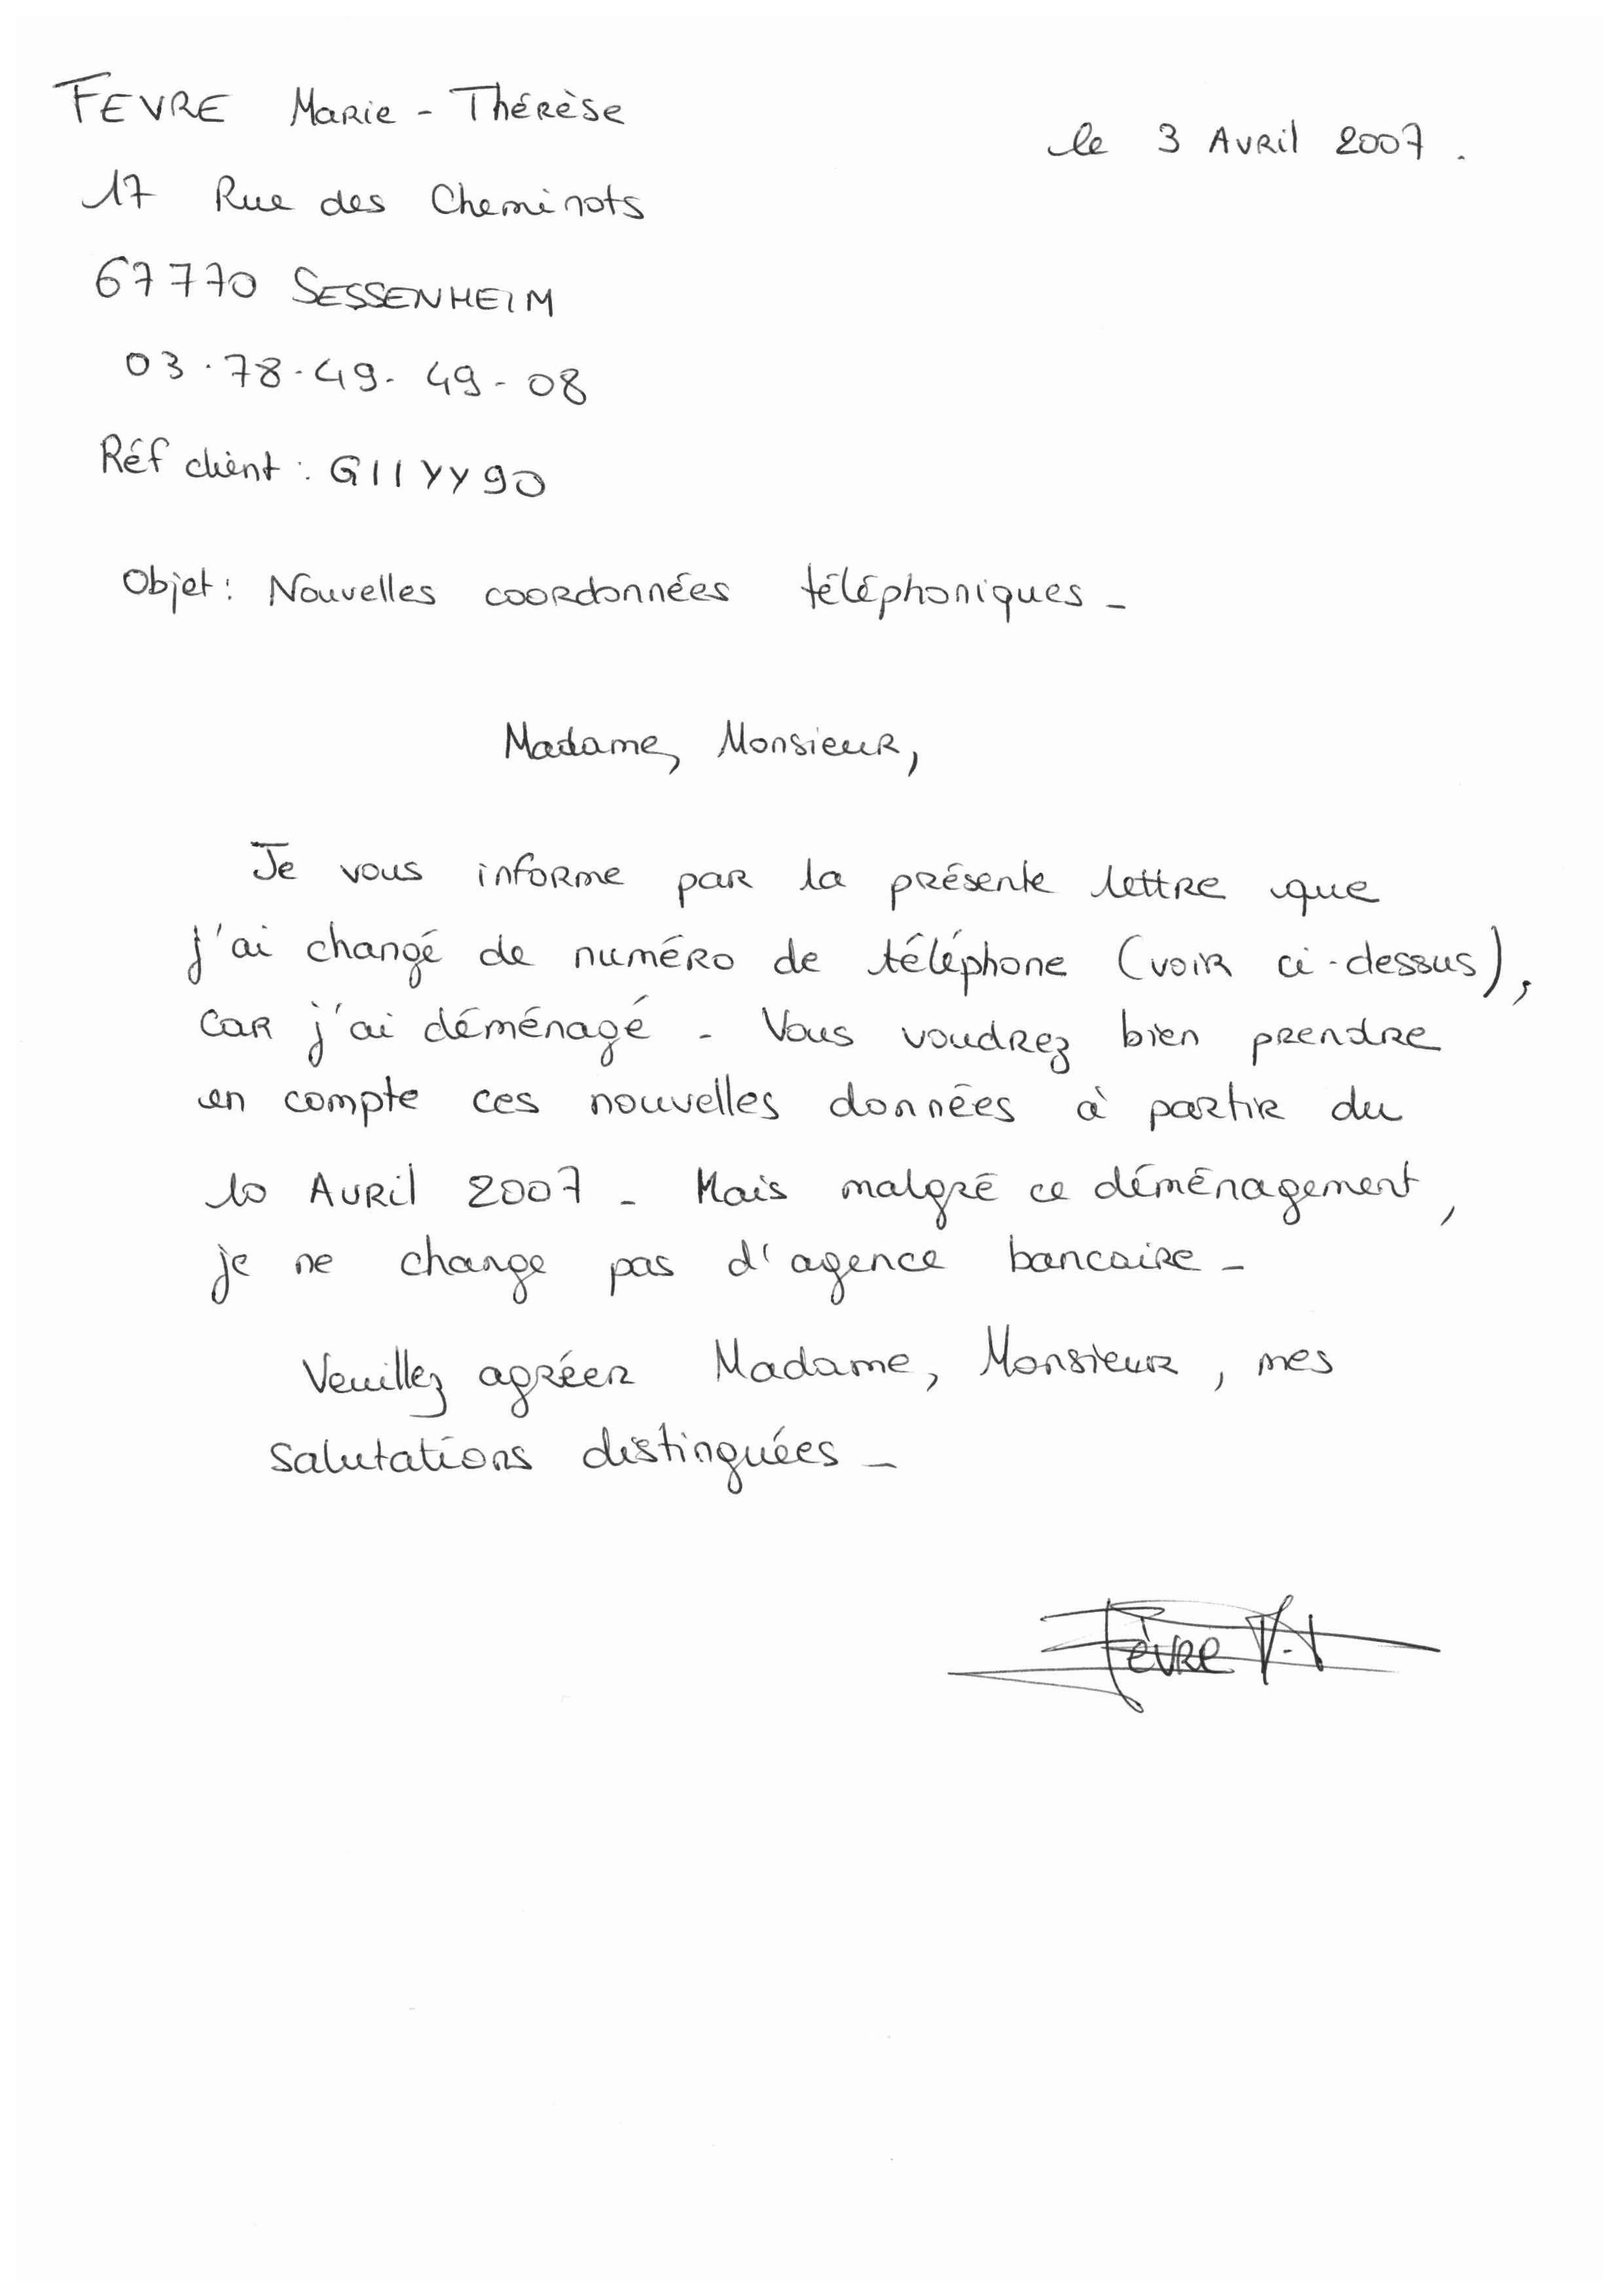 FEVRE Marie-Thérèse
le 3 Avril 2007.
17 Rue des Cheminots
67770 SESSENHEIM
03.78.49.49.08
Réf client : G11YY90
Objet : Nouvelles coordonnées téléphoniques -
Madame, Monsieur,
Je vous informe par la présente lettre que
j'ai changé de numéro de téléphone (voir ci-dessus),
car j'ai déménagé - Vous voudrez bien prendre
en compte ces nouvelles données à partir du
10 Avril 2007 - Mais malgré ce déménagement,
je ne change pas d'agence bancaire -
Veuillez agréer Madame, Monsieur, mes
salutations distinguées -
Fèvre